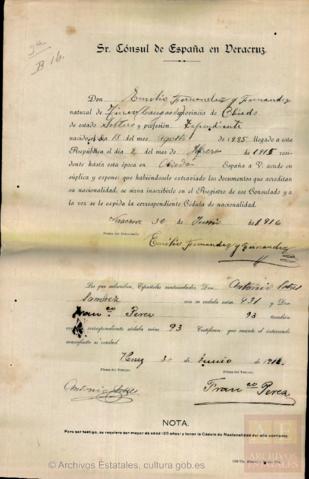 B-16.
Sr. Cónsul de España en Veracruz.
Don Emilio Fernandez y Fernandez
natural de provincia de Oviedo
de estado Soltero y profesión Dependiente
nacido el 18 del mes Agosto 1895 llegado a esta
República el día 2 del mes de Enero 1915 resi-
dente hasta esta época en Oviedo España a V. atento en
súplica y expone: que habiéndosele extraviado los documentos que acreditan
su nacionalidad, se sirva inscribirle en el Registro de ese Consulado y a
la vez se le expida la correspondiente Cédula de nacionalidad.
Veracruz 30 de Junio de 1916
Emilio Fernandez y Fernandez
Los que subscriben, Españoles matriculados, Don Antonio
Sanchez con su cédula núm. 431 y Don
Fran co Perea 93 también
correspondiente cédula núm. 93 Certifican que cuanto el interesado
manifiesta es verdad.
30 de Junio de 1916
Antonio
Fran co Perea
NOTA.
Para ser testigo, se requiere ser mayor de edad (25 años) y tener la Cédula de Nacionalidad del año corriente.
© Archivos Estatales, cultura.gob.es